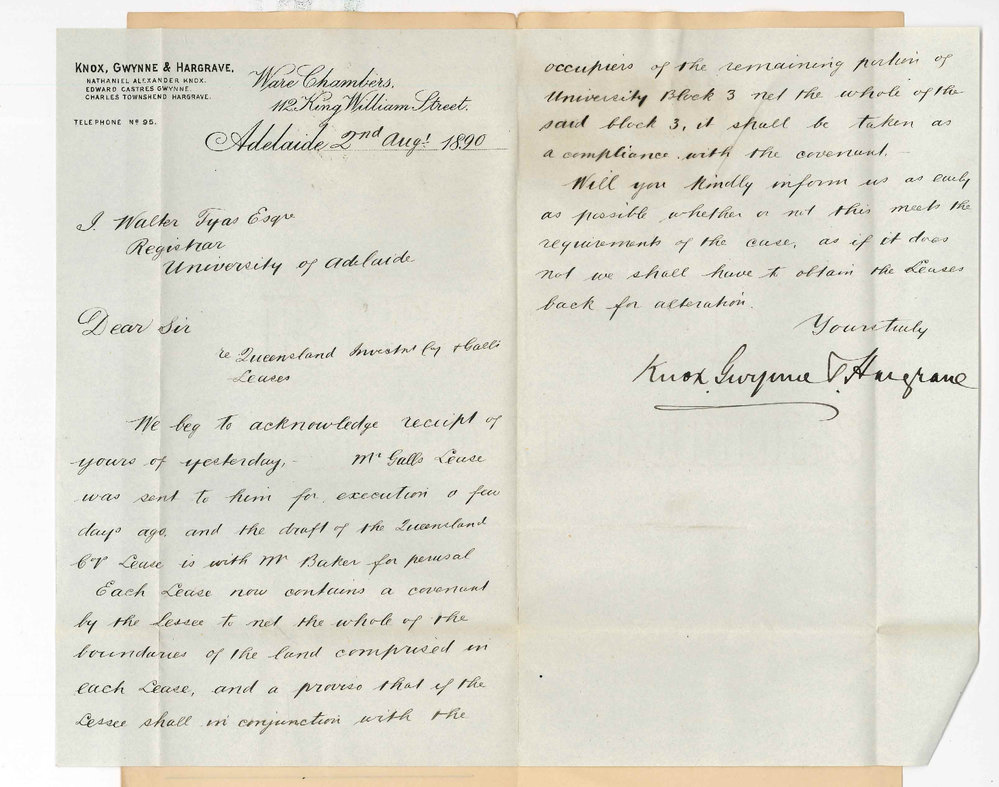 KNOX, GWYNNE & HARGRAVE,
NATHANIEL ALEXANDER KNOX.
EDWARD CASTRES GWYNNE.
CHARLES TOWNSHEND HARGRAVE.
TELEPHONE No 95.
Ware Chambers.
112 King William Street.
Adelaide 2nd Augt 1890
J. Walter Tyas Esqre
Registrar
University of Adelaide
Dear Sir
re Queensland Investnt Cy & Galls
Leases
We beg to acknowledge receipt of
yours of yesterday,- Mr Galls Lease
was sent to him for execution a few
days ago, and the draft of the Queensland
Coy Lease is with Mr Baker for perusal
Each Lease now contains a covenant
by the Lessee to net the whole of the
boundaries of the land comprised in
each Lease, and a proviso that if the
Lessee shall in conjunction with the
occupiers of the remaining portion of
University Block 3 net the whole of the
said block 3, it shall be taken as
a compliance with the covenant.-
Will you kindly inform us as early
as possible whether or not this meets the
requirements of the case, as if it does
not we shall have to obtain the Leases
back for alteration.
Yours truly
Knox, Gwynne & Hargrave